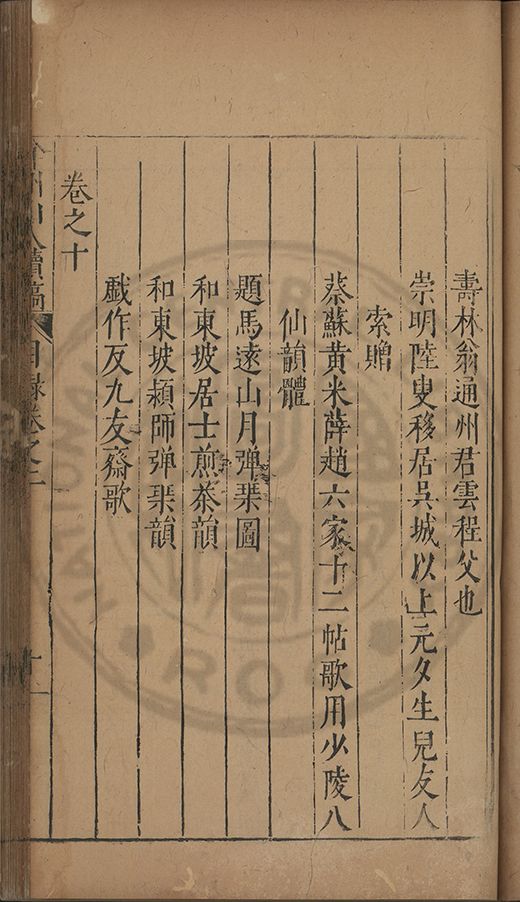 壽林翁通州君雲程父也
崇明陸叟移居吳城以上元夕生兒友人
索贈
蔡蘇黃米薛趙六家十二帖歌用少陵八
仙韻體
題馬遠山月弹琹圖
和東坡居士煎茶韻
和東坡潁師弹琹韻
戱作反九友齋歌
卷之十
人續稿
目錄卷之二